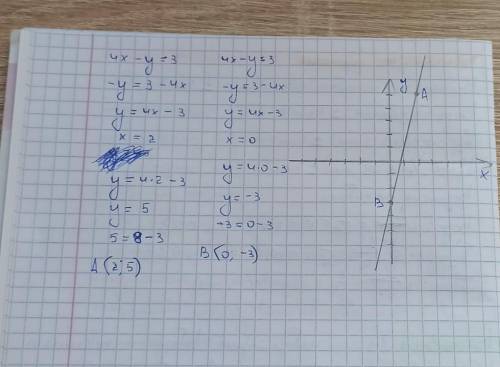 4x - y = 3
-y = 3 - 4x
y = 4x - 3
x = 2
y = 4·2 - 3
y = 5
5 = 8 - 3
A (2; 5)
4x - y = 3
-y = 3 - 4x
y = 4x - 3
x = 0
y = 4·0 - 3
y = -3
-3 = 0 - 3
B (0, -3)
y
A
x
B